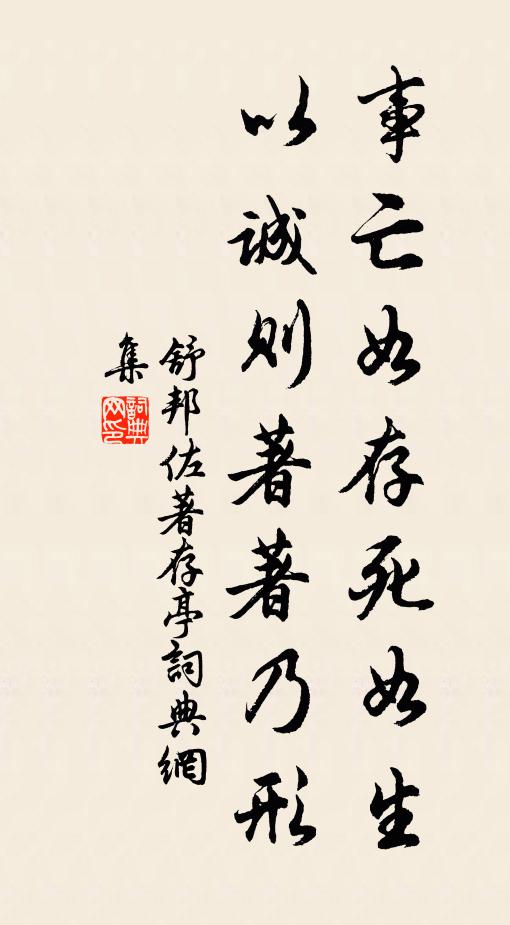 事亡如存死如生
以誠則著著乃形
舒邦佐著存亭詞典網
集
詞典網印